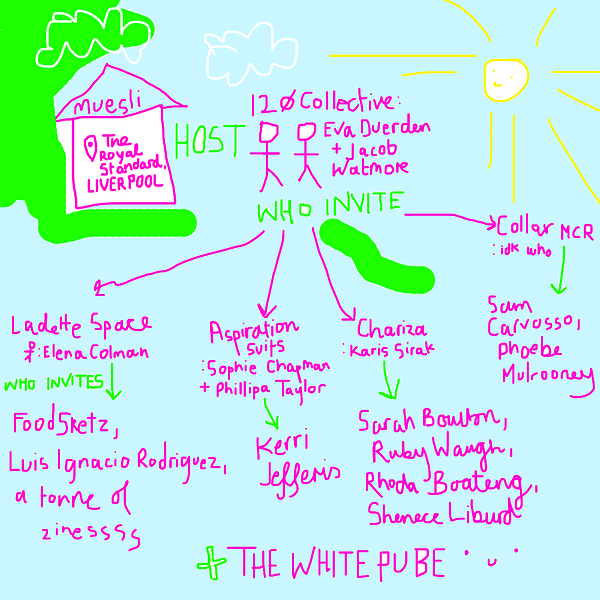 muesli
The
Royal
Standard,
LIVERPOOL
HOST
12ØCollective:
Eva Duerden
+ Jacob
Watmore
WHO INVITE
Collar MCR
: idk who
Sam
Carvosso,
Phoebe
Mulrooney
Ladette Space
: Elena Colman
WHO INVITES
FoodSketz,
Luis Ignacio Rodriguez,
a tonne of
zinessss
Aspiration
Suits
: Sophie Chapman
+ Phillipa Taylor
Kerri
Jefferis
Chariza
: Karis Sirak
Sarah Boulton,
Ruby Waugh,
Rhoda Boateng,
Shenece Liburd
+ THE WHITE PUBE